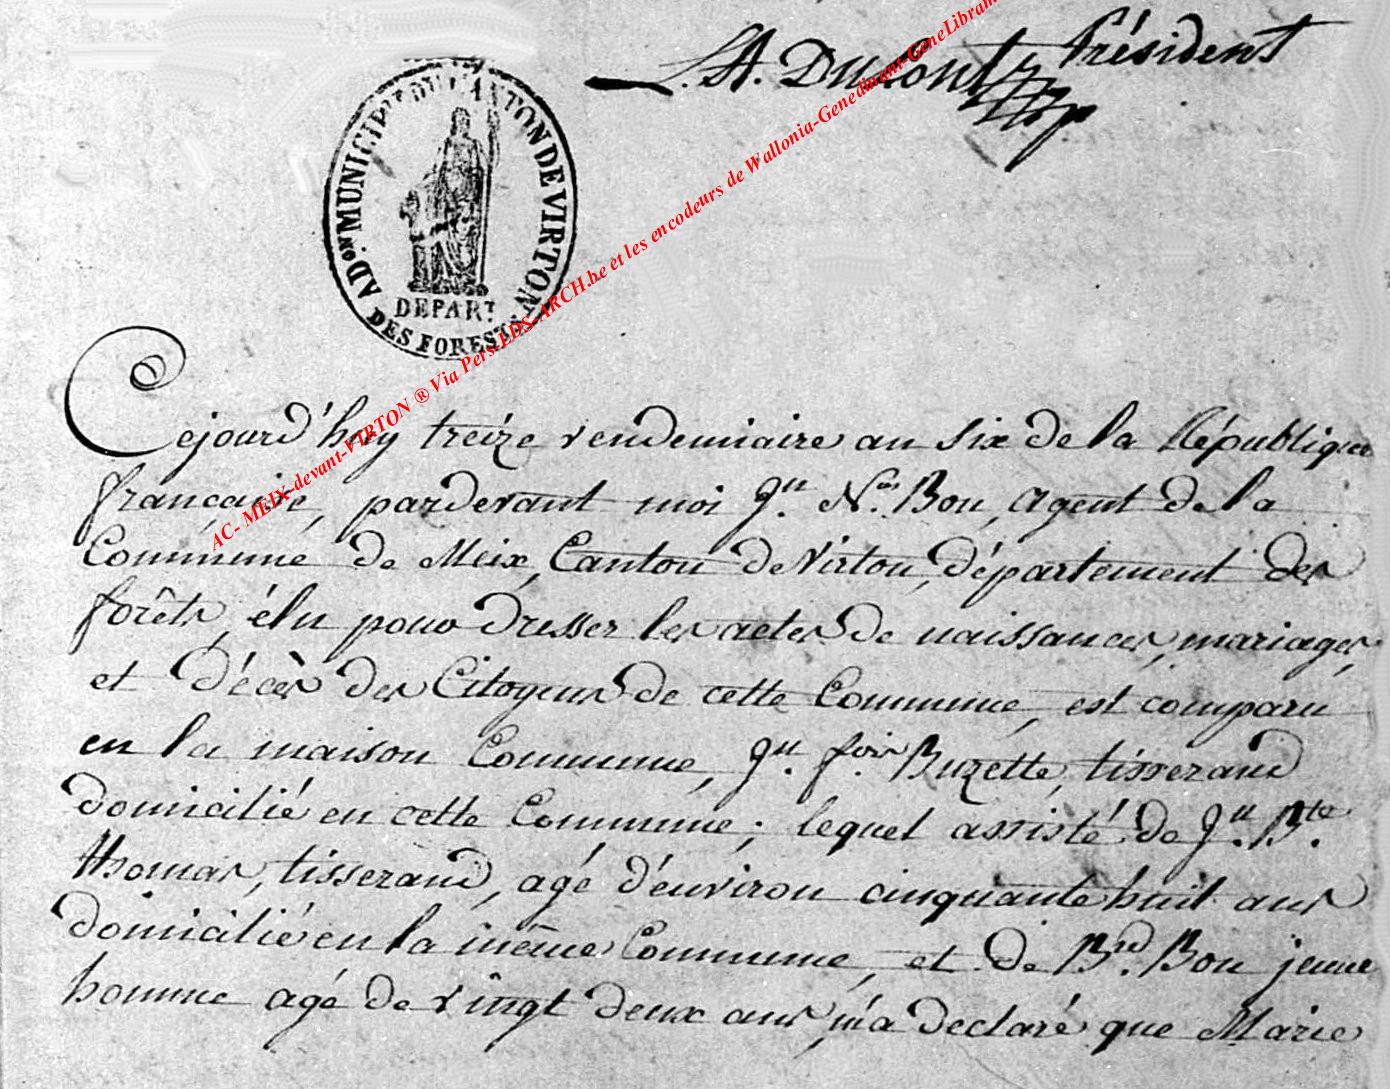 L.A. Dulont Président
ADon. MUNICIPE DU CANTON DE VIRTON
DEPART.
DES FORESTS.
AC- MEIX-devant-VIRTON ® Via Pers-LDS-ARCH.be et les encodeurs de Wallonia-Genedinant-GeneLibram
Cejourd'huy treize vendemiaire an six de la République
française, pardevant moi Jn. Nas. Bon, agent de la
Commune de Meix, Canton de Virton, département des
forêts, élu pour dresser les actes de naissances, mariages,
et décès des Citoyens de cette Commune, est comparu
en la maison Commune, Jn. fois Buzette, tisserand
domicilié en cette Commune; lequel assisté de Jn. Bte.
thomas, tisserand, agé d'environ cinquante huit ans
domicilié en la même Commune, et de Brd. Bon jeune
homme agé de vingt deux ans, m'a declaré que Marie